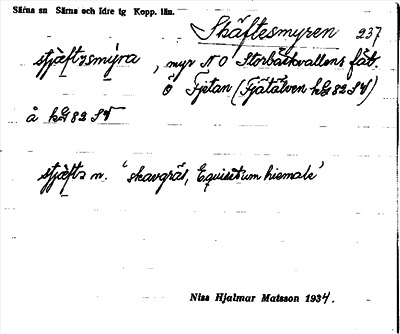 Särna sn Särna och Idre tg Kopp. län.
Skäftesmyren 237
stjæftzsmýra, myr NO Storbäckvallens fäb.
Ö Fjetan (Fjätälven kG 82 SV)
å kG 82 SV
stjæftz n. 'skavgräs, Equisetum hiemale'
Nils Hjalmar Matsson 1934.